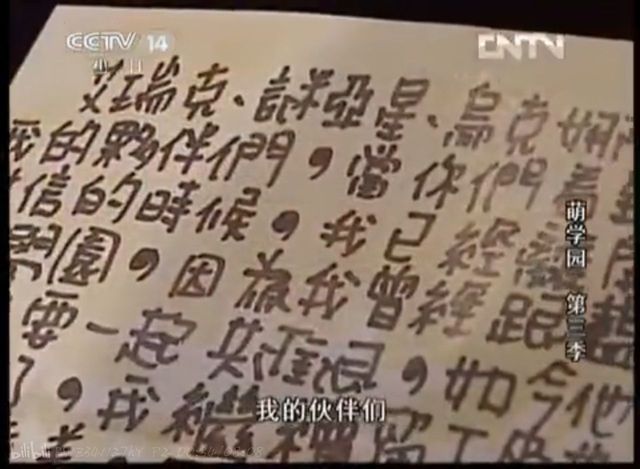 CCTV 14
少儿
CNTV
艾瑞克、謎亞星、烏克娜
我的夥伴們，當你們看到
信的時候，我已經離開
學園，因為我曾經跟
要一起共進退，如今他
了，我繼續留
萌学园 第三季
我的伙伴们
bilibili